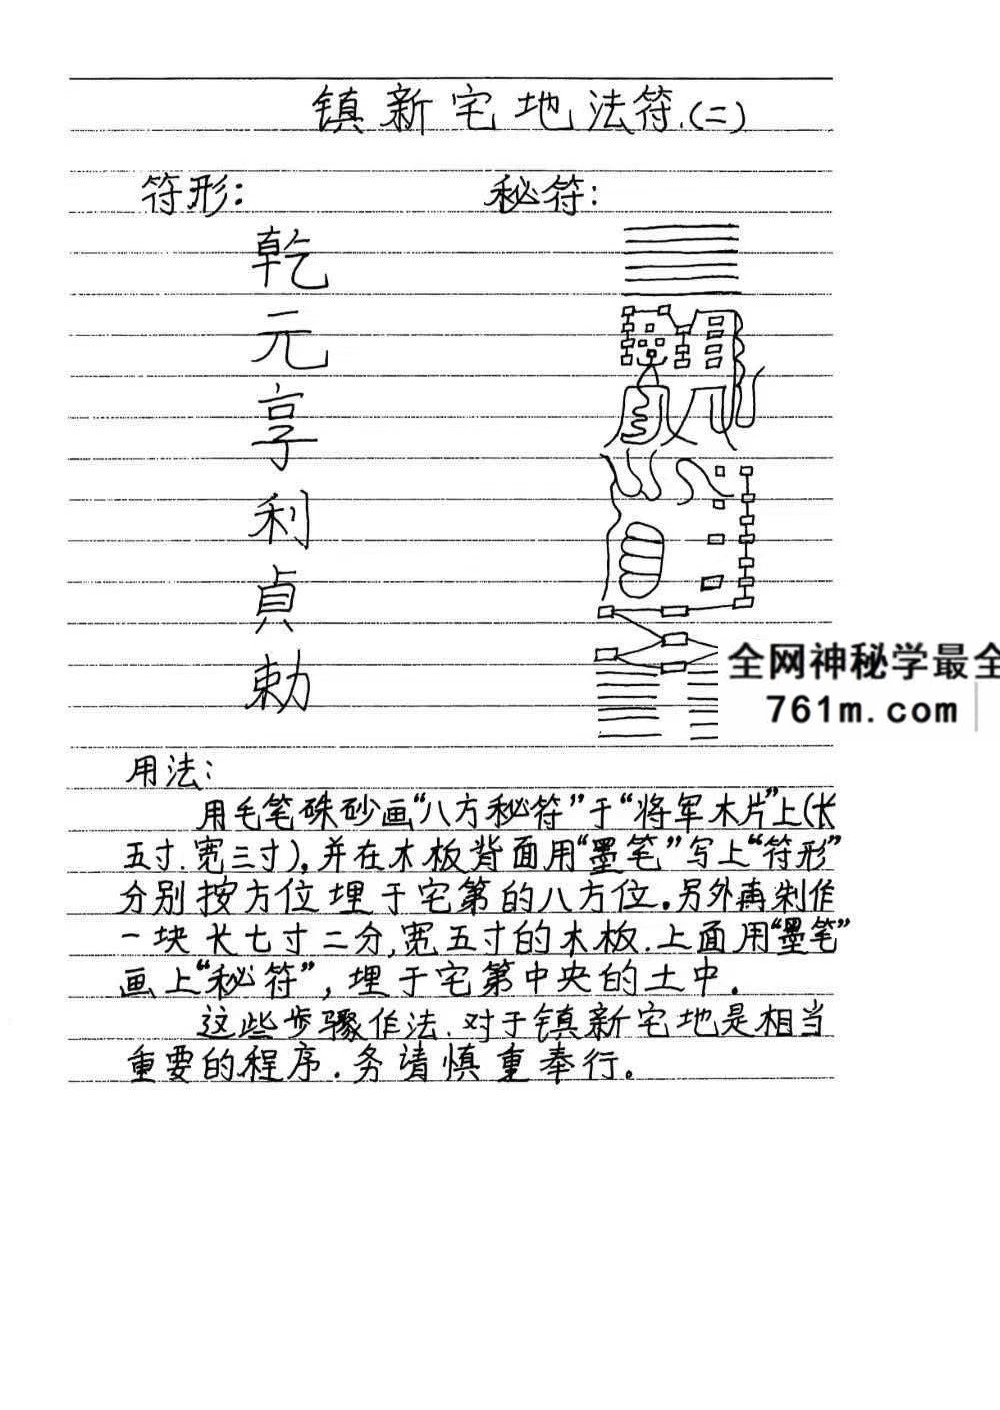 镇新宅地法符.(二)
符形: 秘符:
乾
元
享
利
貞
勅
全网神秘学最全
761m.com
用法:
用毛笔硃砂画“八方秘符”于“将军木片”上(长
五寸.宽三寸)。并在木板背面用“墨笔”写上“符形”
分别按方位埋于宅第的八方位。另外再制作
一块长七寸二分,宽五寸的木板.上面用“墨笔”
画上“秘符”,埋于宅第中央的土中.
这些步骤作法.对于镇新宅地是相当
重要的程序.务请慎重奉行。